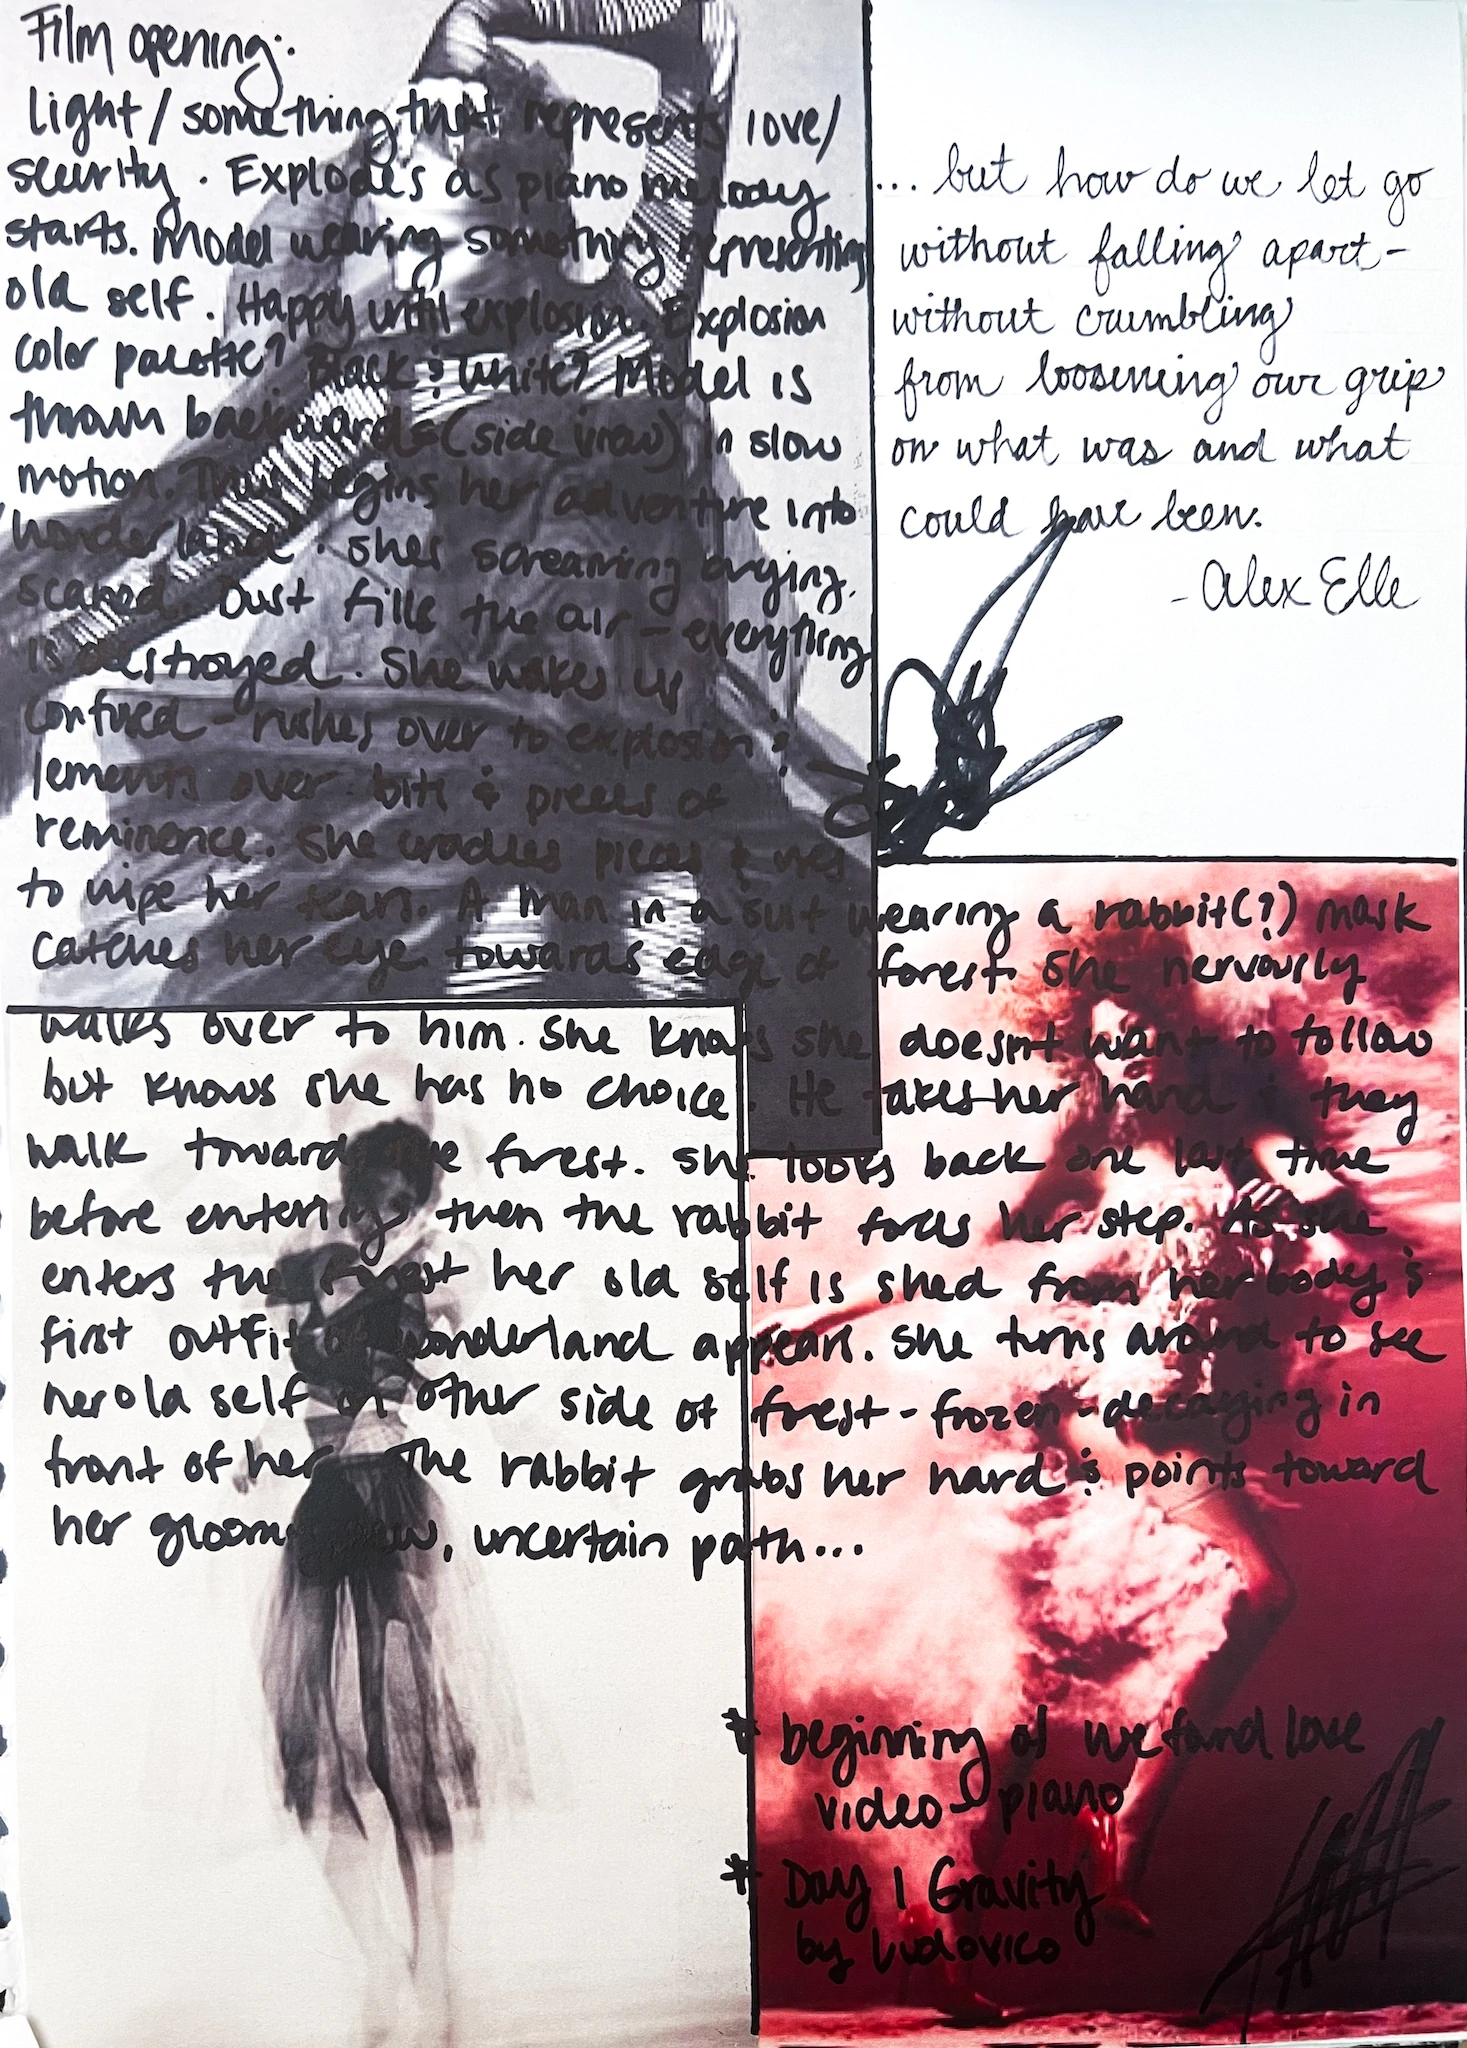 Film opening:
light/something that represents love/
security. Explodes as piano melody
starts. Model wearing something representing
old self. Happy until explosion. Explosion
color palette? Black & white? Model is
thrown backwards (side view) in slow
motion. Thus begins her adventure into
wonderland. Shes screaming crying.
scared. Dust fills the air - everything
is destroyed. She wakes up
confused - rushes over to explosion &
lements over bits & pieces of
reminence. She cradles pieces & tries
to wipe her tears. A man in a suit wearing a rabbit(?) mask
catches her eye towards edge of forest. She nervously
walks over to him. She knows she doesnt want to follow
but knows she has no choice. He takes her hand & they
walk toward the forest. She looks back one last time
before entering then the rabbit forces her step. As she
enters the forest her old self is shed from her body &
first outfit of wonderland appears. She turns around to see
her old self on other side of forest - frozen - decaying in
front of her. The rabbit grabs her hand & points toward
her gloomy, new, uncertain path...
... but how do we let go
without falling apart -
without crumbling
from loosening our grip
on what was and what
could have been.
- Alex Elle
* beginning of we found love
video piano
* Day 1 Gravity
by Ludovico